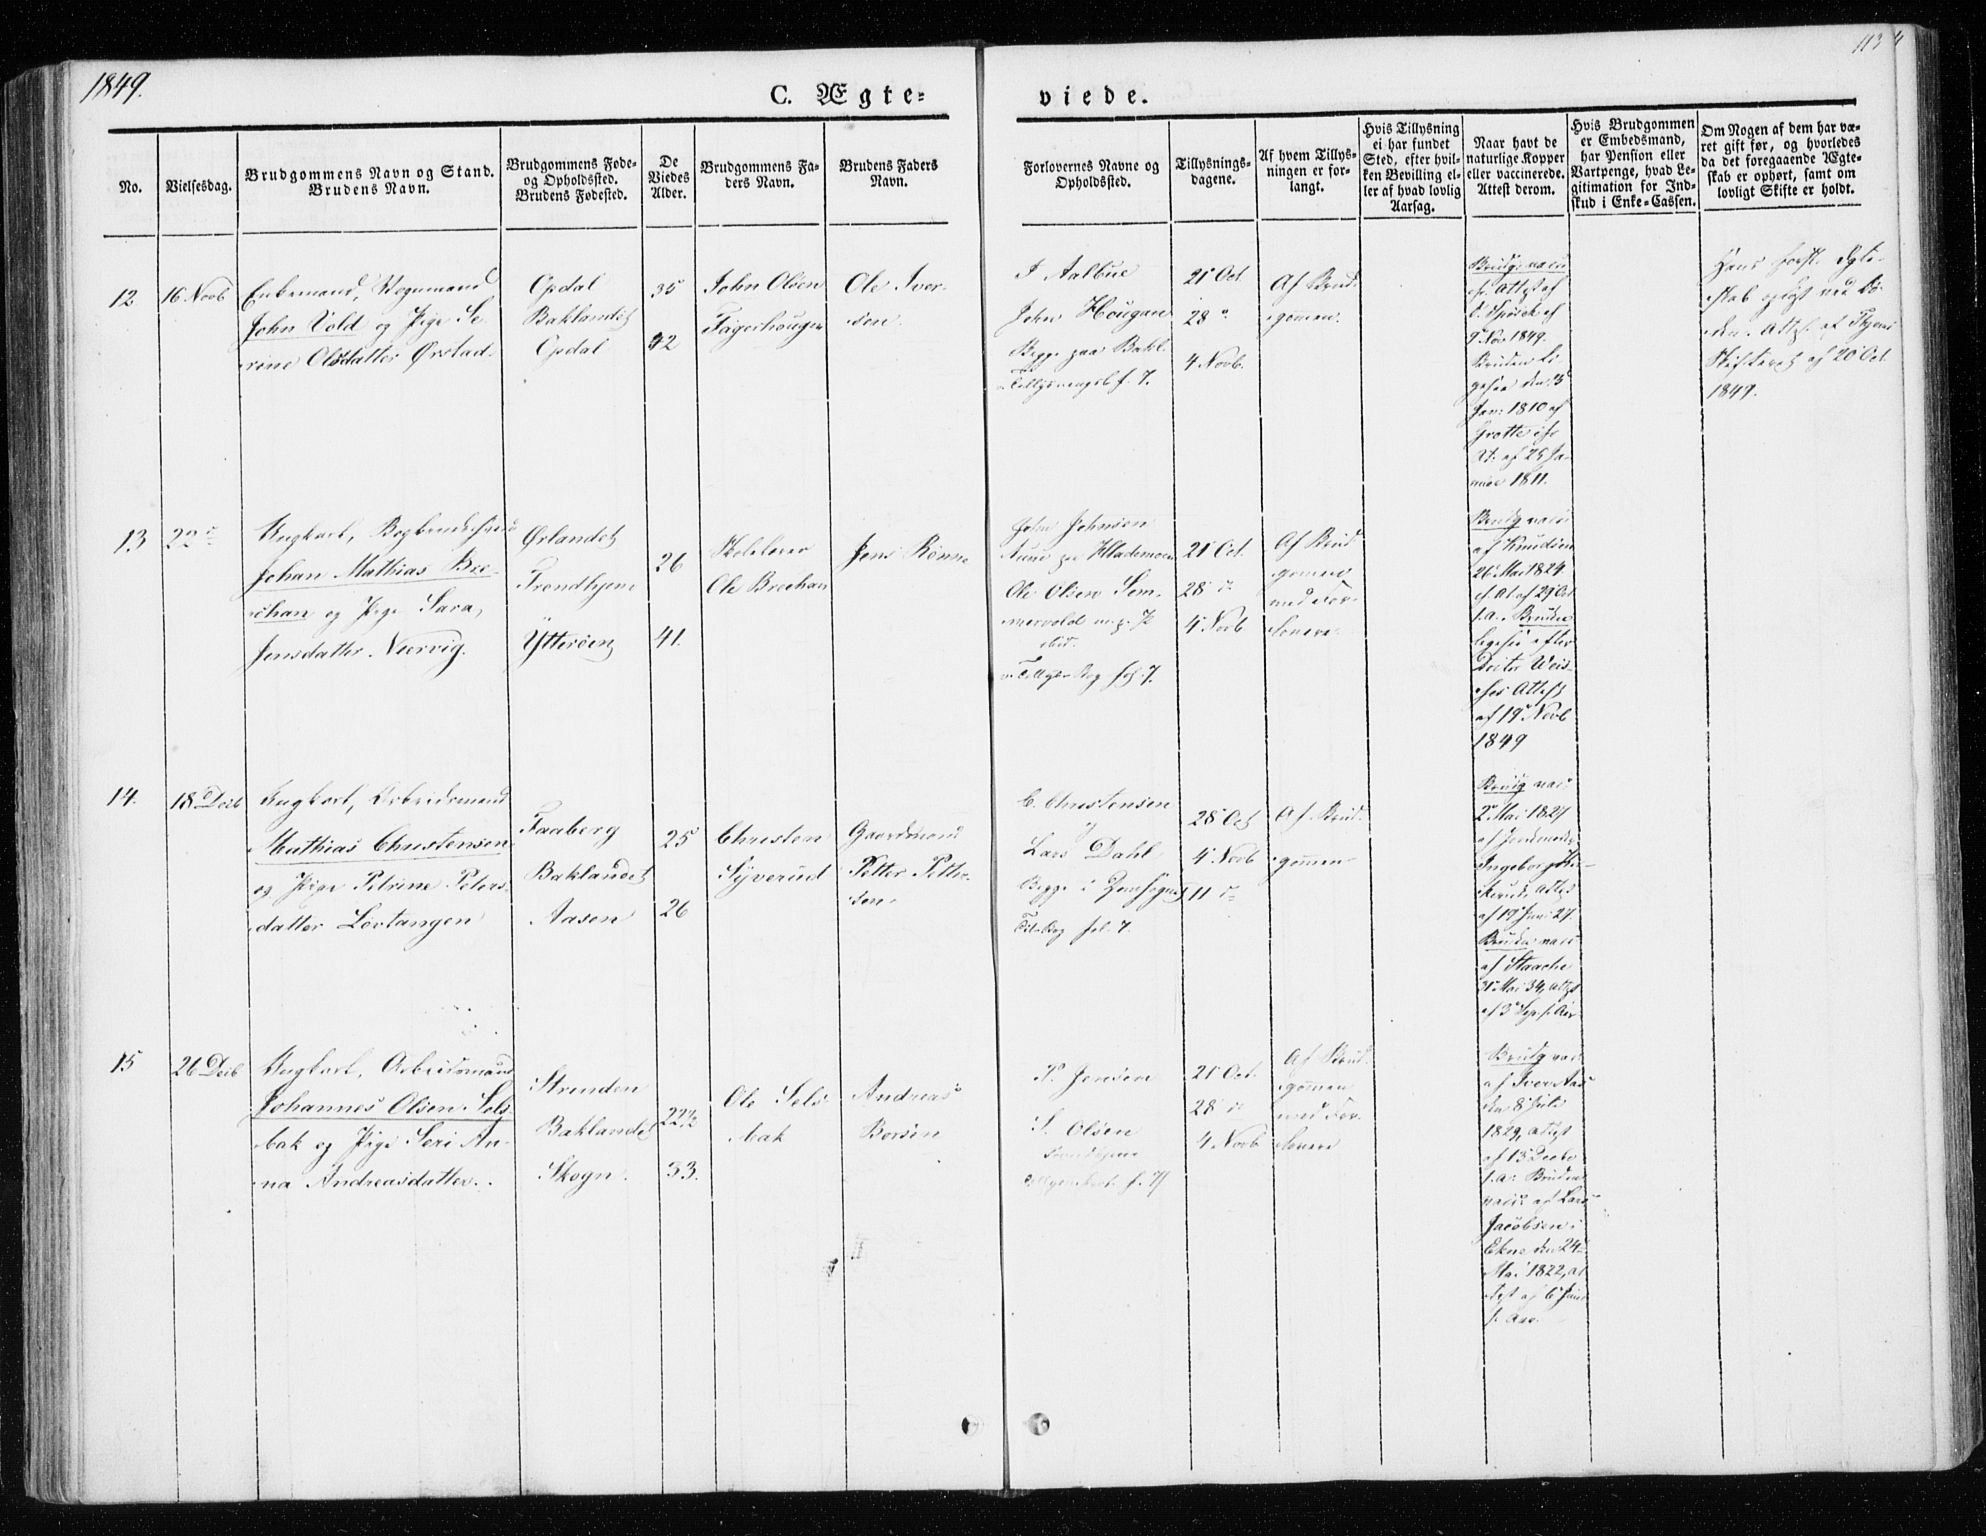 1849.
C. Ægte-
viede.
113
No.
Vielsesdag.
Brudgommens Navn og Stand.
Brudens Navn.
Brudgommens Føde-
og Opholdssted.
Brudens Fødested.
De
Viedes
Alder.
Brudgommens Fa-
ders Navn.
Brudens Faders
Navn.
Forlovernes Navne og
Opholdssted.
Tillysnings-
dagene.
Af hvem Tillys-
ningen er for-
langt.
Hvis Tillysning
ei har fundet
Sted, efter hvil-
ken Bevilling el-
ler af hvad lovlig
Aarsag.
Naar havt de
naturlige Kopper
eller vaccinerede.
Attest derom.
Hvis Brudgommen
er Embedsmand,
har Pension eller
Vartpenge, hvad Le-
gitimation for Ind-
skud i Enke-Cassen.
Om Nogen af dem har væ-
ret gift før, og hvorledes
da det foregaaende Ægte-
skab er ophørt, samt om
lovligt Skifte er holdt.
12
16 Novb
Enkemand, Vognmand
John Vold og Pige Se-
rine Olsdatter Ørstad.
Opdal
Baklandet
Opdal
35
42
John Olsen
Fagerhougen
Ole Iver-
sen.
J. Aalbue
John Hougan
Begge paa Bakl.
f. 7.
21 Oct.
28
4 Novb.
Af Brud-
gommen.
Brudg. vacc.
Attest af
9 Nov 1849.
Bruden
Jan: 1810 af
Grotte
At. af 25 Ja-
1811.
Hans første Ægte-
skab opløst ved Dø-
den. Attest af
Skifteret af 20 Oct.
1849.
13
22
Ungkarl,
Johan Mathias Bre-
chan og Pige Sara
Jensdatter Nærvig.
Ørlandet
Trondhjem
Ytterøen
26
41.
Ole Brechan
Jens Rønne
John Johnsen
Aune paa Hlademoen
Ole Olsen Som-
mervold
Bog fol. 7.
21 Oct.
28
4 Novb
Af Brud
gommen
med For-
lovere.
Brudg vacc
af Knudsen
26 Mai 1824
At af 29 Oct
f. A. Bruden
ligesaa efter
Doctor Weis-
ses Attest
af 19 Novb
1849
14.
18 Decb
Ungkarl, Arbeidsmand
Mathias Christensen
og Pige Petrine Peters-
datter Levtangen
Faaberg
Baklandet
Aasen
25
26
Christen
Syverud
Gaardmand
Petter Petter-
sen.
C. Christensen
Lars Dahl
Begge i
Bog fol. 7.
28 Oct
4 Novb
11
Af Brud-
gommen
Brudg vac:
2 Mai 1827
af Jordmoder
Ingeborg
Attest
af 19 Juni 27.
Bruden vacc
af Staache
31 Mai 34, Attest
af 3 Sep. f. Aar
15
26 Decb
Ungkarl, Arbeidsmand
Johannes Olsen Sels-
bak og Pige Seri An-
na Andreasdatter.
Strinden
Baklandet
Skogn.
22½
33.
Ole Sels-
bak
Andreas
Borsen
P. Jensen
S. Olsen
Trondhjem
f. 7
21 Oct.
28
4 Novb
Af Brud-
gommen
med For-
lovere
Brudg vac.
af Iver Aas
den 8 Juli
1829, attest
af 15 Decbr
f. A. Bruden
vacc. af Lars
Jacobsen i
Ekne den 24
Mai 1822, at-
test af 6 Juni
f. Aar.